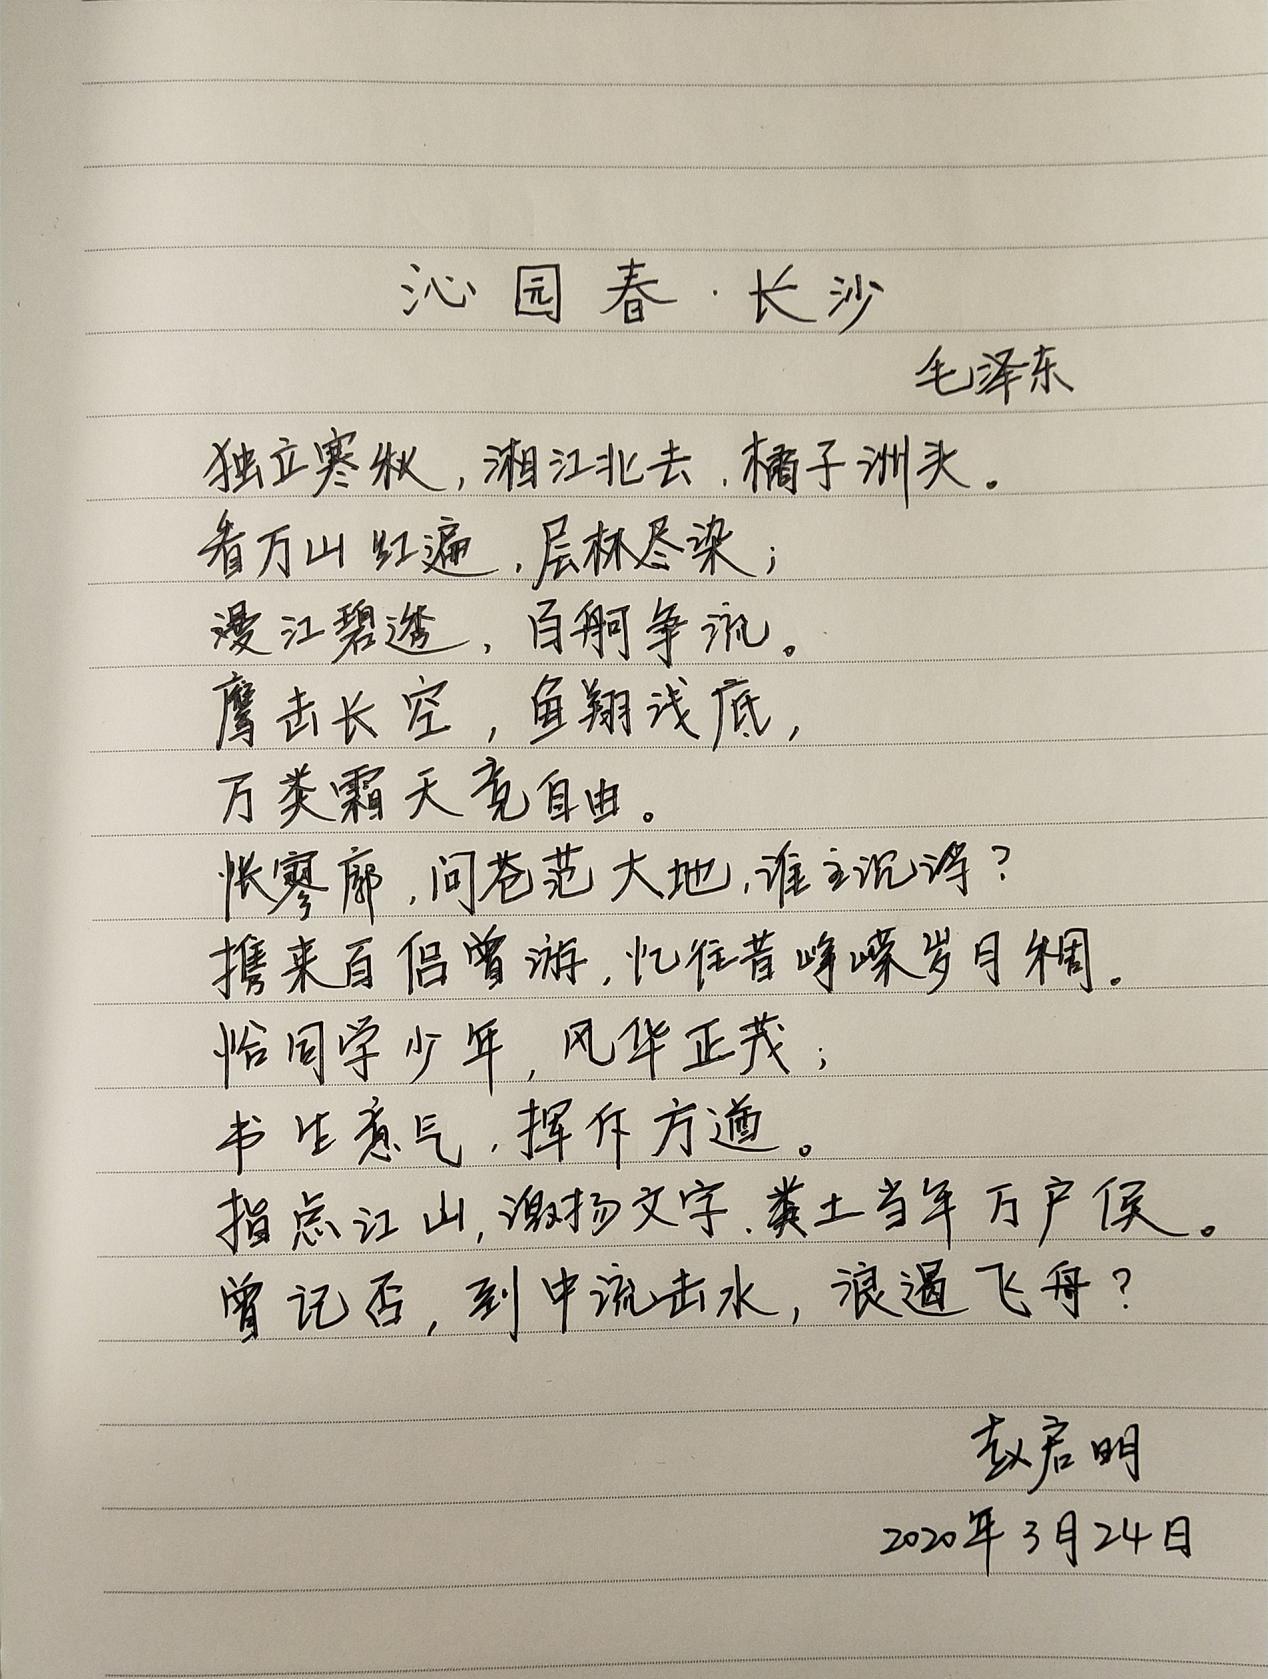 沁园春·长沙
毛泽东
独立寒秋，湘江北去，橘子洲头。
看万山红遍，层林尽染；
漫江碧透，百舸争流。
鹰击长空，鱼翔浅底，
万类霜天竞自由。
怅寥廓，问苍茫大地，谁主沉浮？
携来百侣曾游，忆往昔峥嵘岁月稠。
恰同学少年，风华正茂；
书生意气，挥斥方遒。
指点江山，激扬文字，粪土当年万户侯。
曾记否，到中流击水，浪遏飞舟？
赵启明
2020年3月24日